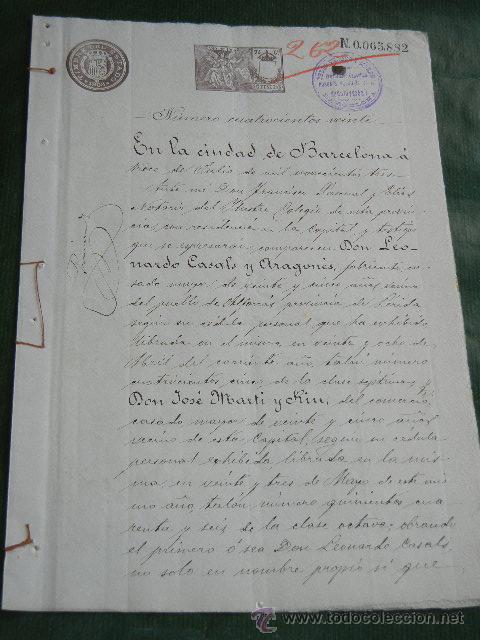 262
N.0.065.882
Número cuatrocientos veinte
En la ciudad de Barcelona á
trece de Julio de mil novecientos tres.
Ante mi Don Francisco Pascual y
Notario del Ilustre Colegio de esta provin
cia con residencia en la Capital y testigos
que se expresarán comparecen Don Leo-
nardo Casals y Aragonés, fabricante ca-
sado mayor de veinte y cinco años vecino
del pueblo de provincia de Lérida
según su cédula personal que ha exhibido
librada en el mismo en veinte y ocho de
Abril del corriente año, talón número
cuatrocientos cinco de la clase septima; y
Don José Martí y, del comercio,
casado mayor de veinte y cinco años
vecino de esta Capital, según su cedula
personal exhibida librada en la mis-
ma en veinte y tres de Mayo de este mis
mo año, talón número quinientos cua
renta y seis de la clase octava; obrando
el primero ó sea Don Leonardo Casals,
no solo en nombre propio si que
www.todocoleccion.net